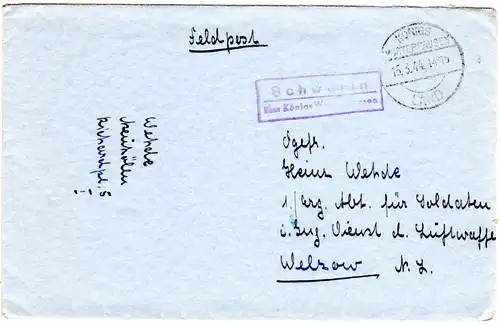 Feldpost
KÖNIGS
WUSTERHAUSEN
15.3.44.
LAND
Schwerin
über Königs Wusterhausen
Wehde
Neukölln
Richardpl. 5
Sgefr.
Heinz Wehde
1./Erg. Abt. für Soldaten
i. Ing. Dienst d. Luftwaffe
Welzow N. L.